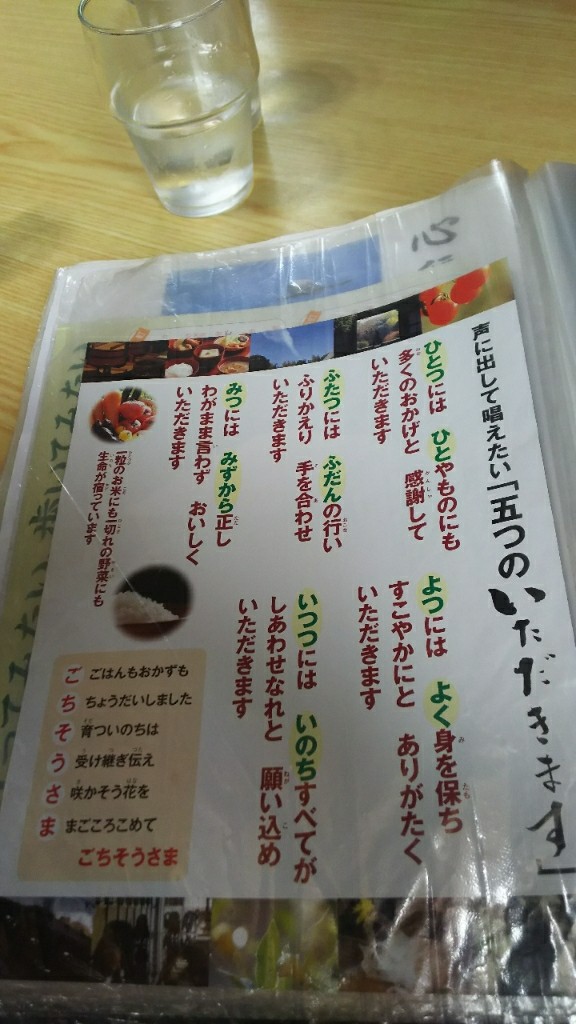 声に出して唱えたい「五つのいただきます」
ひとつには　ひとやものにも
多くのおかげと　感謝して
いただきます
ふたつには　ふだんの行い
ふりかえり　手を合わせ
いただきます
みつには　みずから正し
わがまま言わず　おいしく
いただきます
よつには　よく身を保ち
すこやかにと　ありがたく
いただきます
いつつには　いのちすべてが
しあわせなれと　願い込め
いただきます
一粒のお米にも一切れの野菜にも
生命が宿っています
ご　ごはんもおかずも
ち　ちょうだいしました
そ　育ついのちは
う　受け継ぎ伝え
さ　咲かそう花を
ま　まごころこめて
ごちそうさま